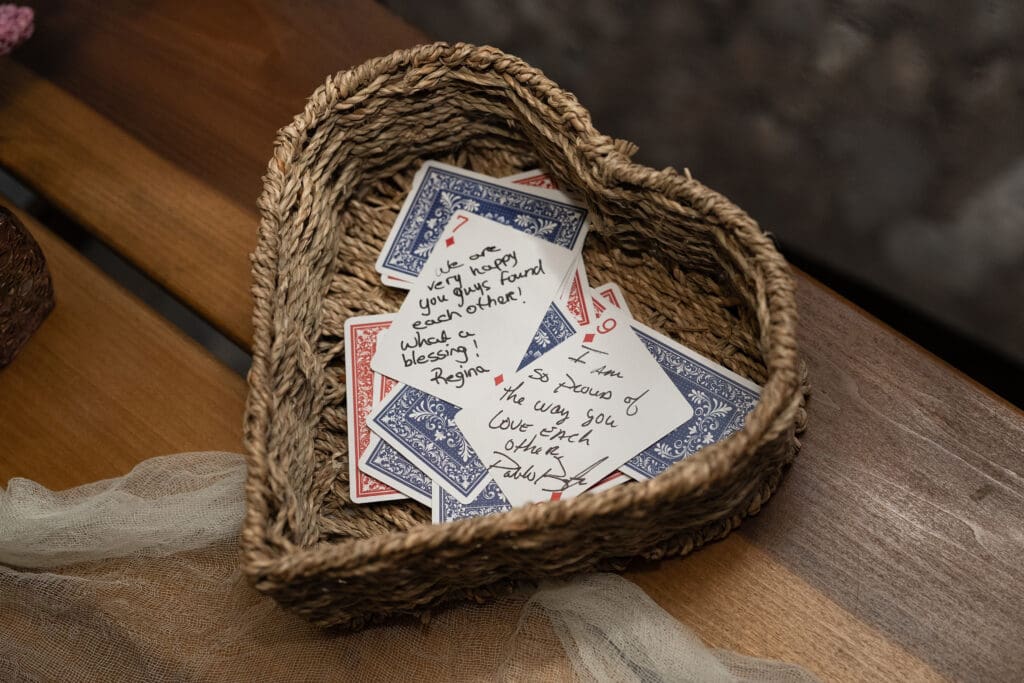 7
we are
very happy
you guys found
each other!
what a
blessing!
Regina
9
I Am
so proud of
the way you
Love Each
other
Pablo